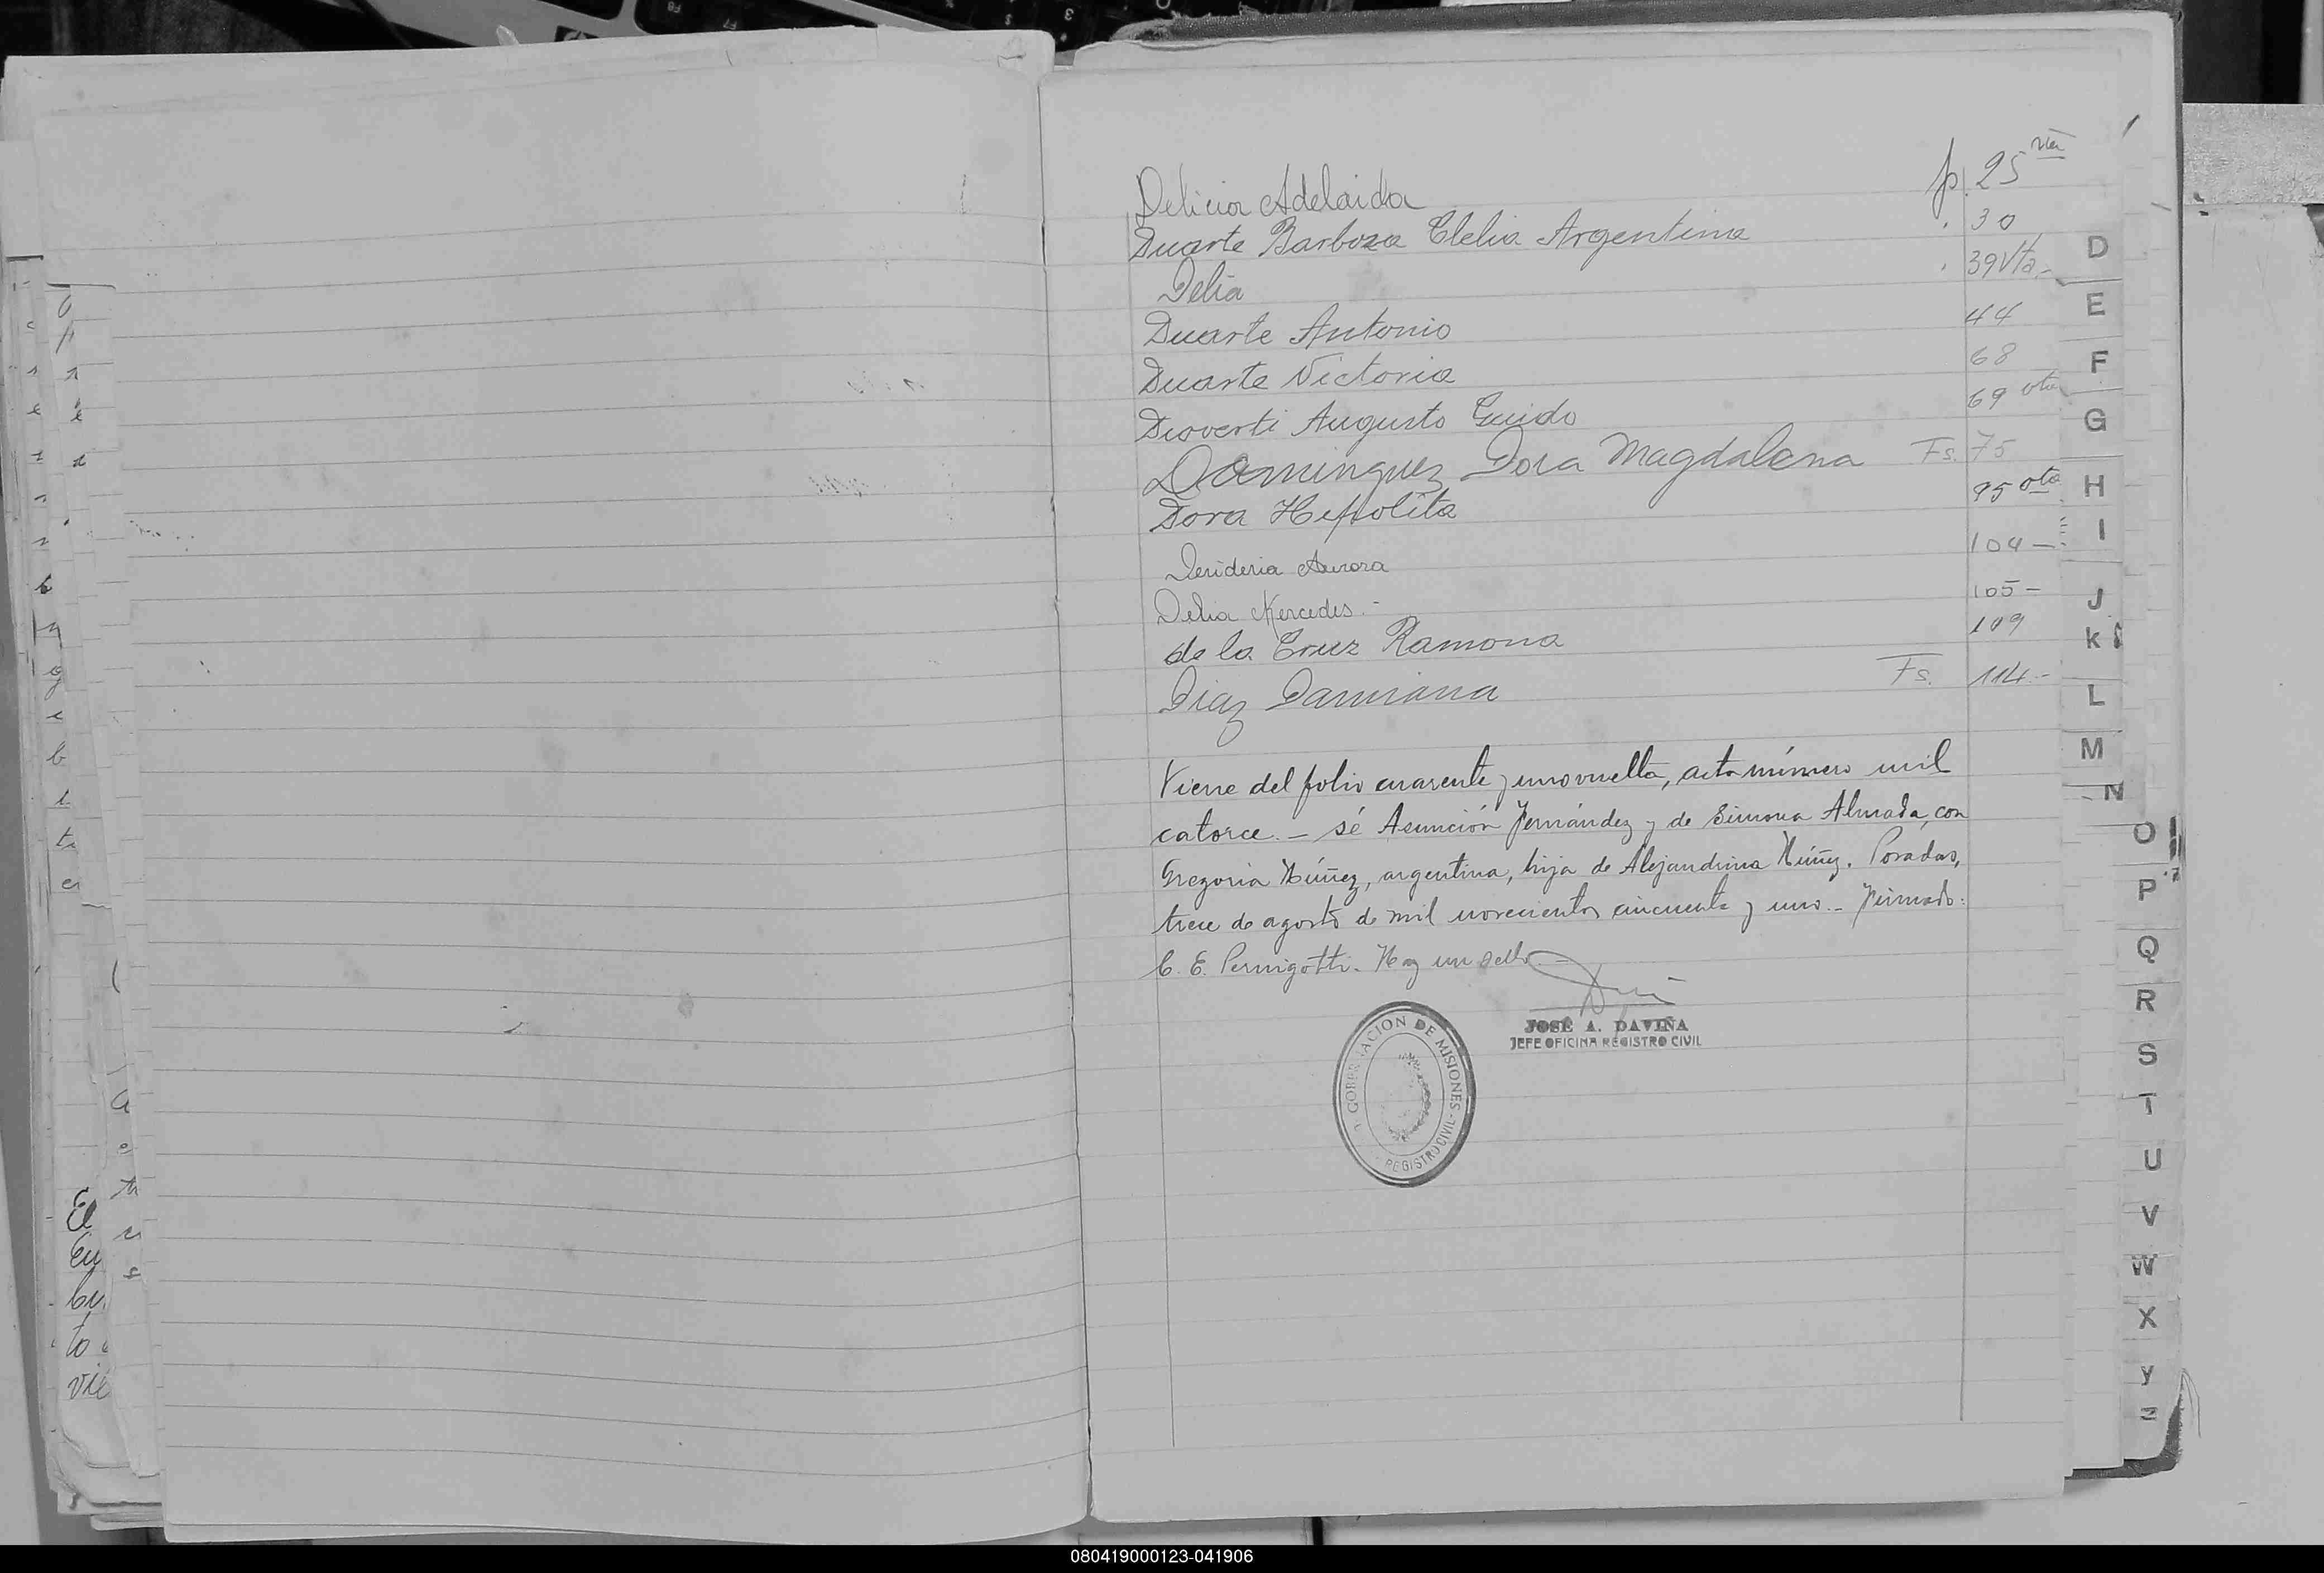 Delicia Adelaida p. 25 vta
Duarte Barboza Clelia Argentina . 30
Delia . 39 Vta.-
Duarte Antonio 44
Duarte Victoria 68
Augusto Guido 69 vta
Dominguez Dora Magdalena Fs. 75
Dora Hipolita 95 vta
Desideria Aurora 104 -
Delia Mercedes.- 105 -
de la Cruz Ramona 109
Diaz Damiana Fs. 114.-
Viene del folio cuarenta y uno vuelta, acta número mil
catorce.- sé Asunción Fernández y de Simona Almada, con
Gregoria Núñez, argentina, hija de Alejandrina Núñez. Posadas,
trece de agosto de mil novecientos cincuenta y uno.- Firmado:
C. E. Pernigotti. Hay un sello.-
JOSÉ A. DAVIÑA
JEFE OFICINA REGISTRO CIVIL
GOBERNACION DE MISIONES - REGISTRO CIVIL
D
E
F
G
H
I
J
K
L
M
N
O
P
Q
R
S
T
U
V
W
X
Y
Z
El
080419000123-041906